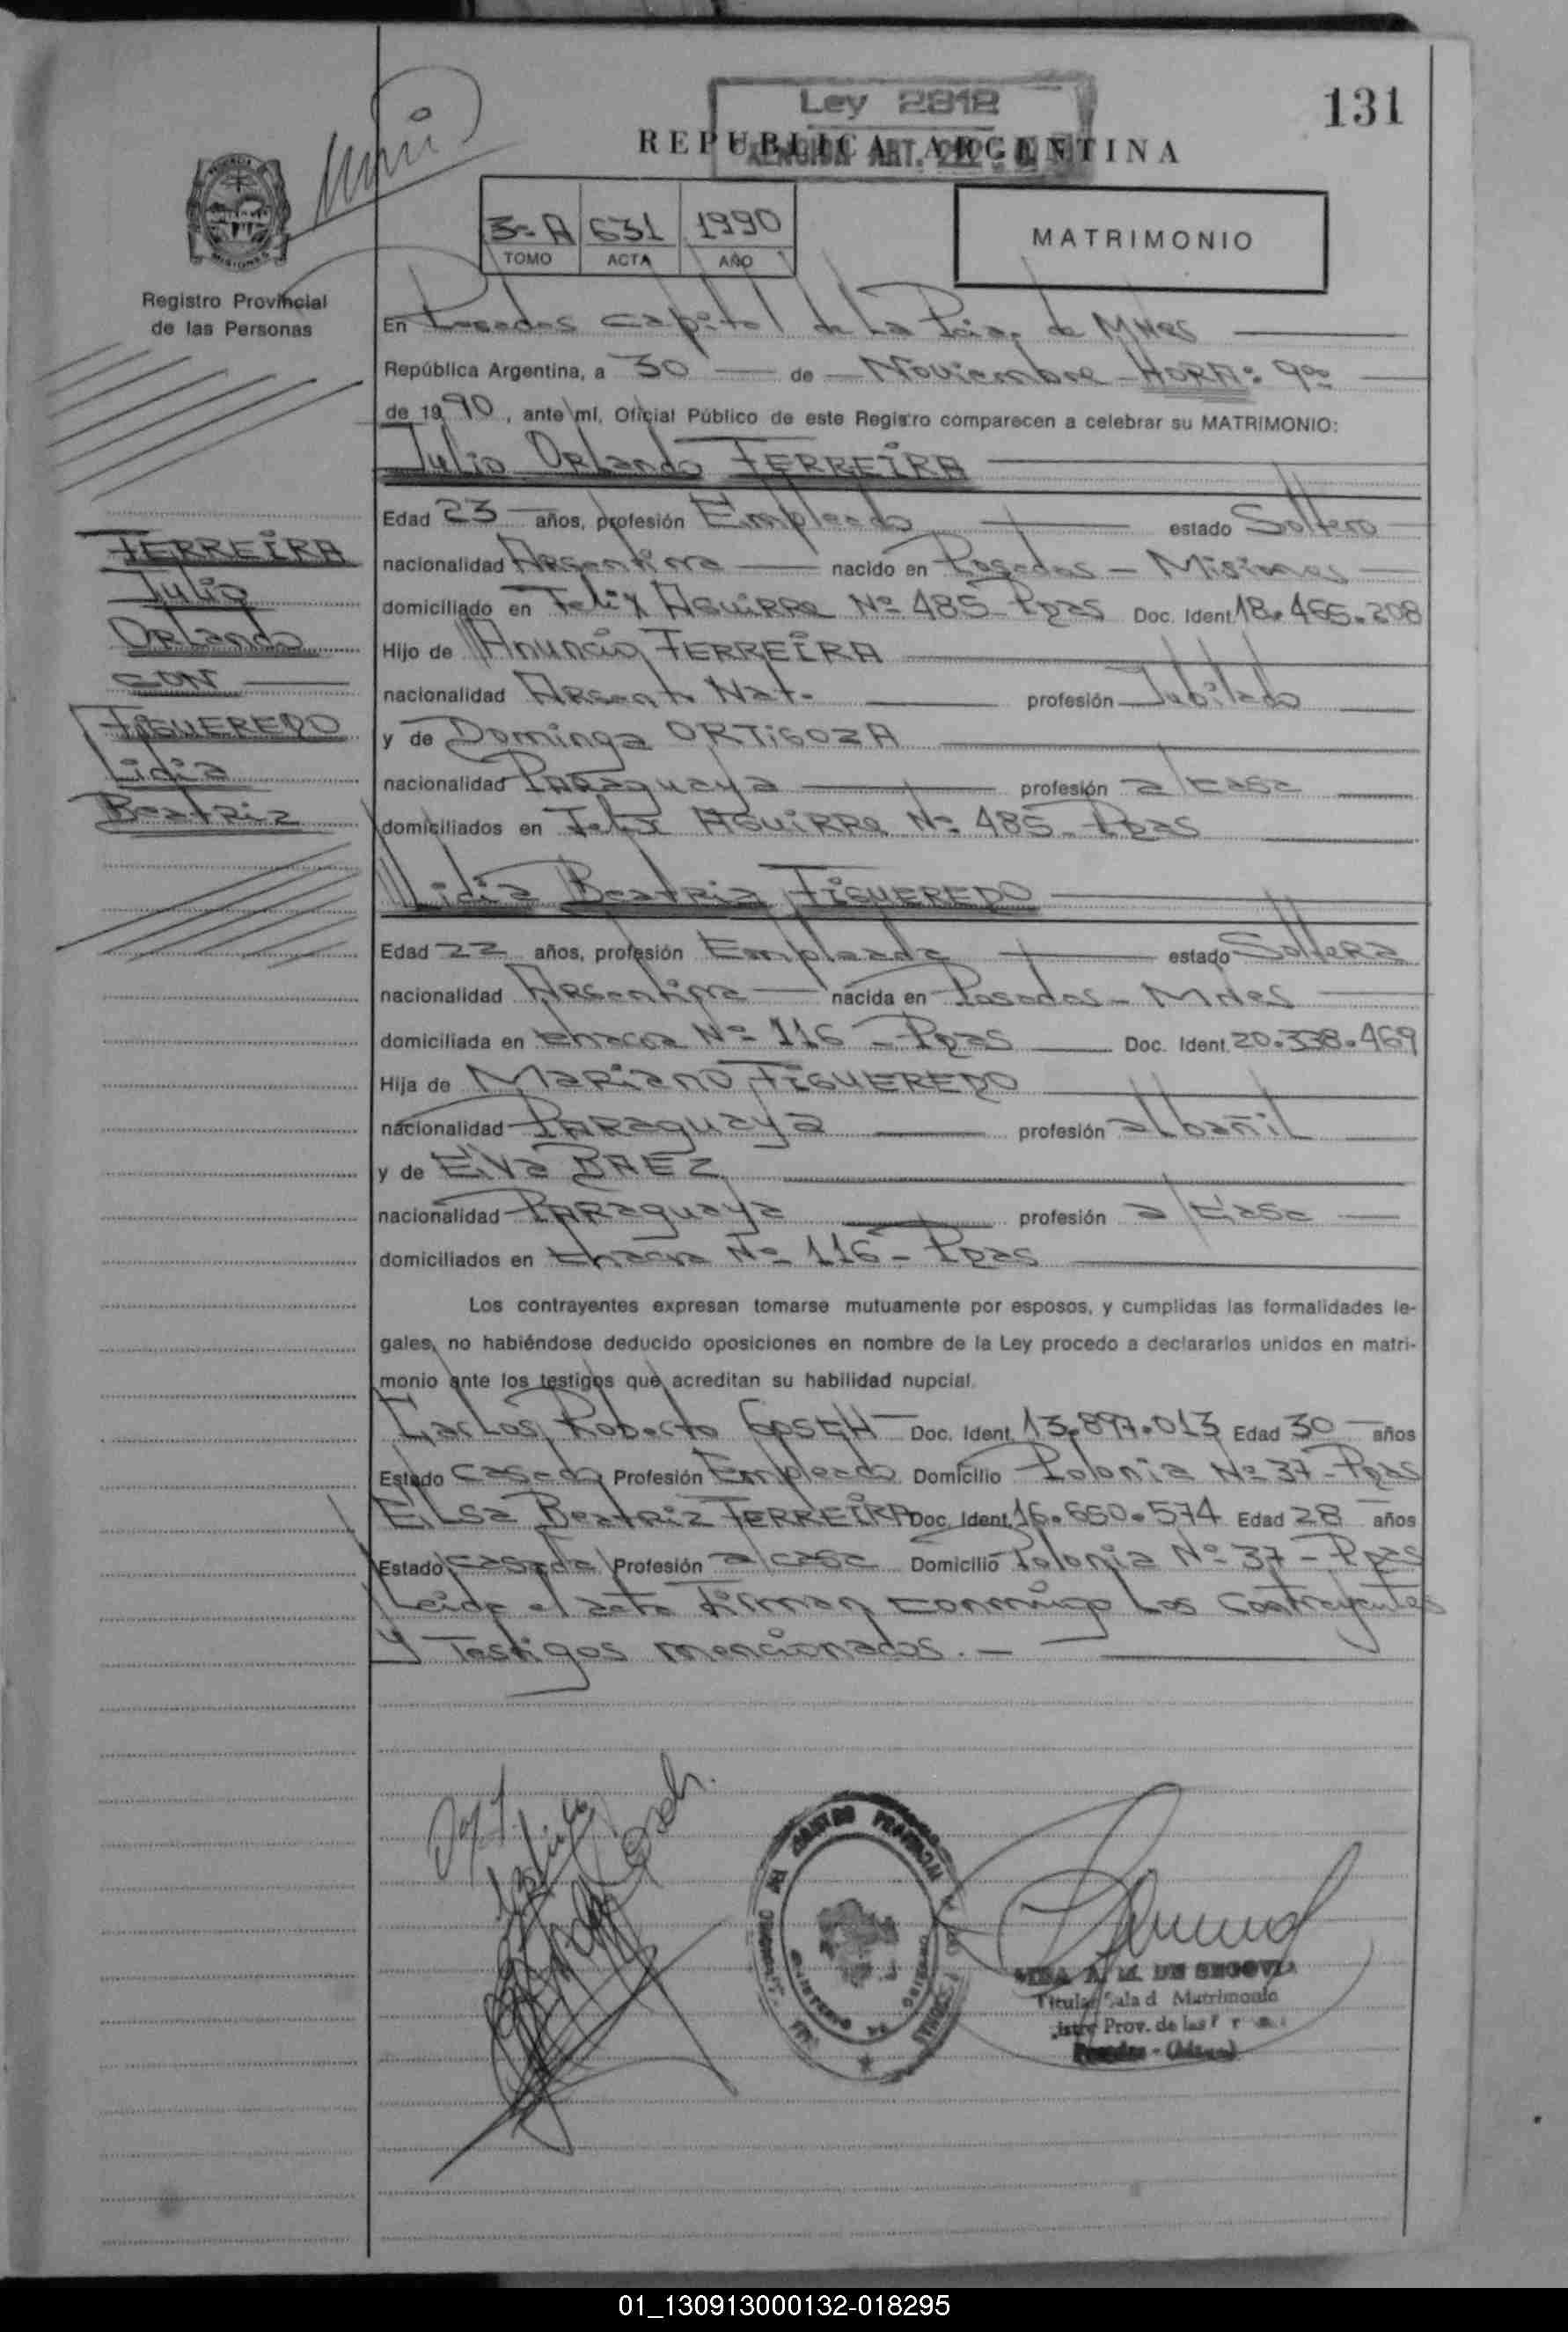 131
Ley 2812
REPUBLICA ARGENTINA
EXENCION ART.
3º A 631 1990
TOMO ACTA AÑO
MATRIMONIO
MISIONES
Registro Provincial
de las Personas
En Posadas Capital de La Pcia. de Mnes
República Argentina, a 30 de Noviembre HORA: 9ºº
de 1990, ante mí, Oficial Público de este Registro comparecen a celebrar su MATRIMONIO:
Julio Orlando FERREIRA
Edad 23 años, profesión Empleado estado Soltero
nacionalidad Argentina nacido en Posadas - Misiones
domiciliado en Felix Aguirre Nº 485 Ppas Doc. Ident. 18.465.208
Hijo de Anuncio FERREIRA
nacionalidad Argent. Nat. profesión Jubilado
y de Dominga ORTIGOZA
nacionalidad Paraguaya profesión a/casa
domiciliados en Felix Aguirre Nº 485 - Ppas
FERREIRA
Julio
Orlando
CON
FIGUEREDO
Lidia
Beatriz
Lidia Beatriz FIGUEREDO
Edad 22 años, profesión Empleada estado Soltera
nacionalidad Argentina nacida en Posadas - Mnes
domiciliada en chacra Nº 116 - Ppas Doc. Ident. 20.338.469
Hija de Mariano FIGUEREDO
nacionalidad Paraguaya profesión albañil
y de Elva BAEZ
nacionalidad Paraguaya profesión a/casa
domiciliados en chacra Nº 116 - Ppas
Los contrayentes expresan tomarse mutuamente por esposos, y cumplidas las formalidades le-
gales, no habiéndose deducido oposiciones en nombre de la Ley procedo a declararlos unidos en matri-
monio ante los testigos que acreditan su habilidad nupcial.
Carlos Roberto GOSCH Doc. Ident. 13.897.013 Edad 30 años
Estado Casado Profesión Empleado Domicilio Polonia Nº 37 - Ppas
Elsa Beatriz FERREIRA Doc. Ident. 16.650.574 Edad 28 años
Estado casada Profesión a/casa Domicilio Polonia Nº 37 - Ppas
Leida el acta firman conmigo Los Contrayentes
y Testigos mencionados. -
A. M. DE SEGOVIA
Titular Sala d Matrimonio
Prov. de las
Posadas - (Mnes)
01_130913000132-018295